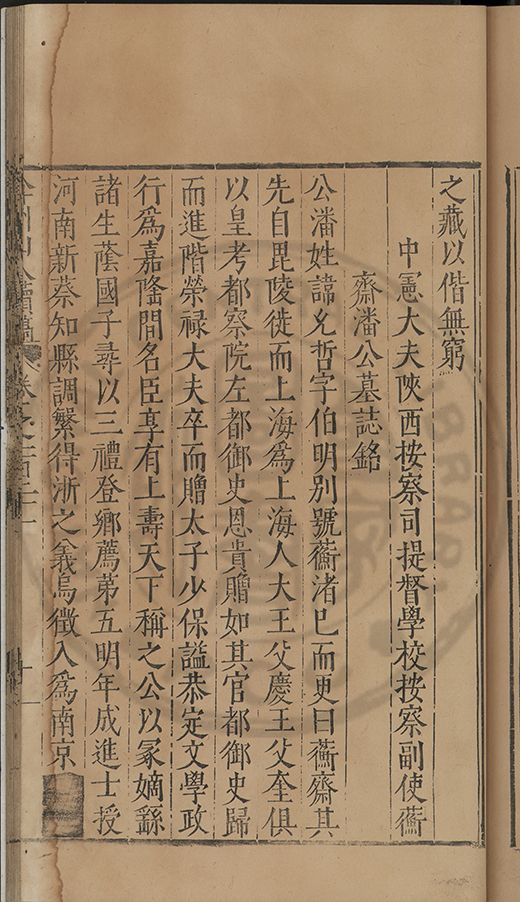 之藏以偕無窮
中憲大夫陝西按察司提督學校按察副使蘅
齋潘公墓誌銘
公潘姓諱允哲字伯明别號蘅渚已而更曰蘅齋其
先自毘陵徙而上海爲上海人大王父慶王父奎俱
以皇考都察院左都御史恩貴贈如其官都御史歸
而進階榮禄大夫卒而贈太子少保謚恭定文學政
行爲嘉隆間名臣享有上壽天下稱之公以冡嫡繇
諸生蔭國子尋以三禮登鄉薦第五明年成進士授
河南新蔡知縣調繁得浙之義烏徵入爲南京